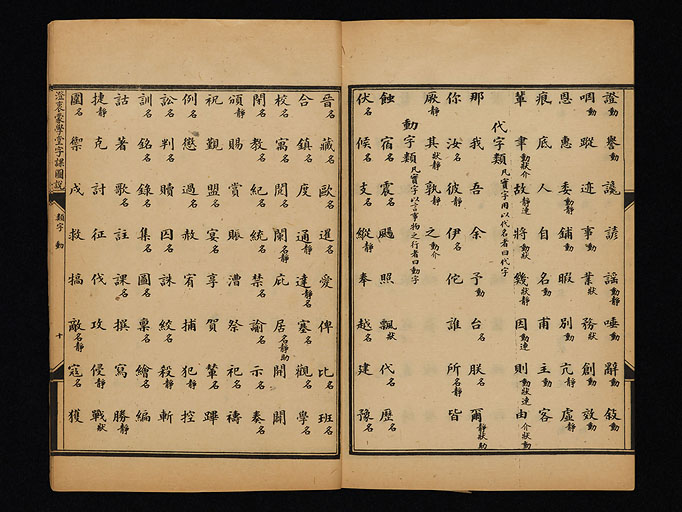 證動 譽動 讒 諺 謠動靜 唾動 辭動 敘動
唱動 蹤 迹 事動 業狀 務狀 創動 效動
恩 惠 委動靜 鋪動 暇 別動 亢靜 虛靜
痕 底 人 自 名動 甫 主動 客
輩 聿動狀介 故靜連 將動狀 幾狀靜 因動連 則動狀連 由介狀動
代字類凡實字用以代名者曰代字
那 我 吾 余 予動 台名 朕名 爾靜狀助
你 汝名 彼靜 伊名 佗 誰 所名靜 皆
厥靜 其狀靜 孰靜 之動介
動字類凡實字以言事物之行者曰動字
蝕 宿名 震名 颺 照 飄狀 代名 歷名
伏名 候名 支名 縱靜 奉 越名 建 豫名
晉名 藏名 歐名 選名 愛 俾 比名 班名
合 鎮名 度 通靜 達靜名 塞名 觀名 學名
校名 寓名 閱名 闌名靜 庇 居名靜助 開 關
閉名 教名 紀名 統名 禁名 諭名 示名 奏名
頒靜 賜 賞 賑 漕 祭 祀名 禱
祝 覲 盟 宴名 享 賀 輦 蹕
例名 懲 過 赦 宥 捕 犯靜 控
訟名 判名 贖 囚名 誅 絞名 殺靜 斬
訓名 銘名 錄名 集名 圖名 稟名 繪名 編
詁 著 歌名 註 課名 撰 寫 勝靜
捷靜 克 討 征 伐 攻 侵靜 戰狀
圍名 禦 戍 救 搞 敵名靜 寇名 獲
澄衷蒙學堂字課圖說
類字 動
十